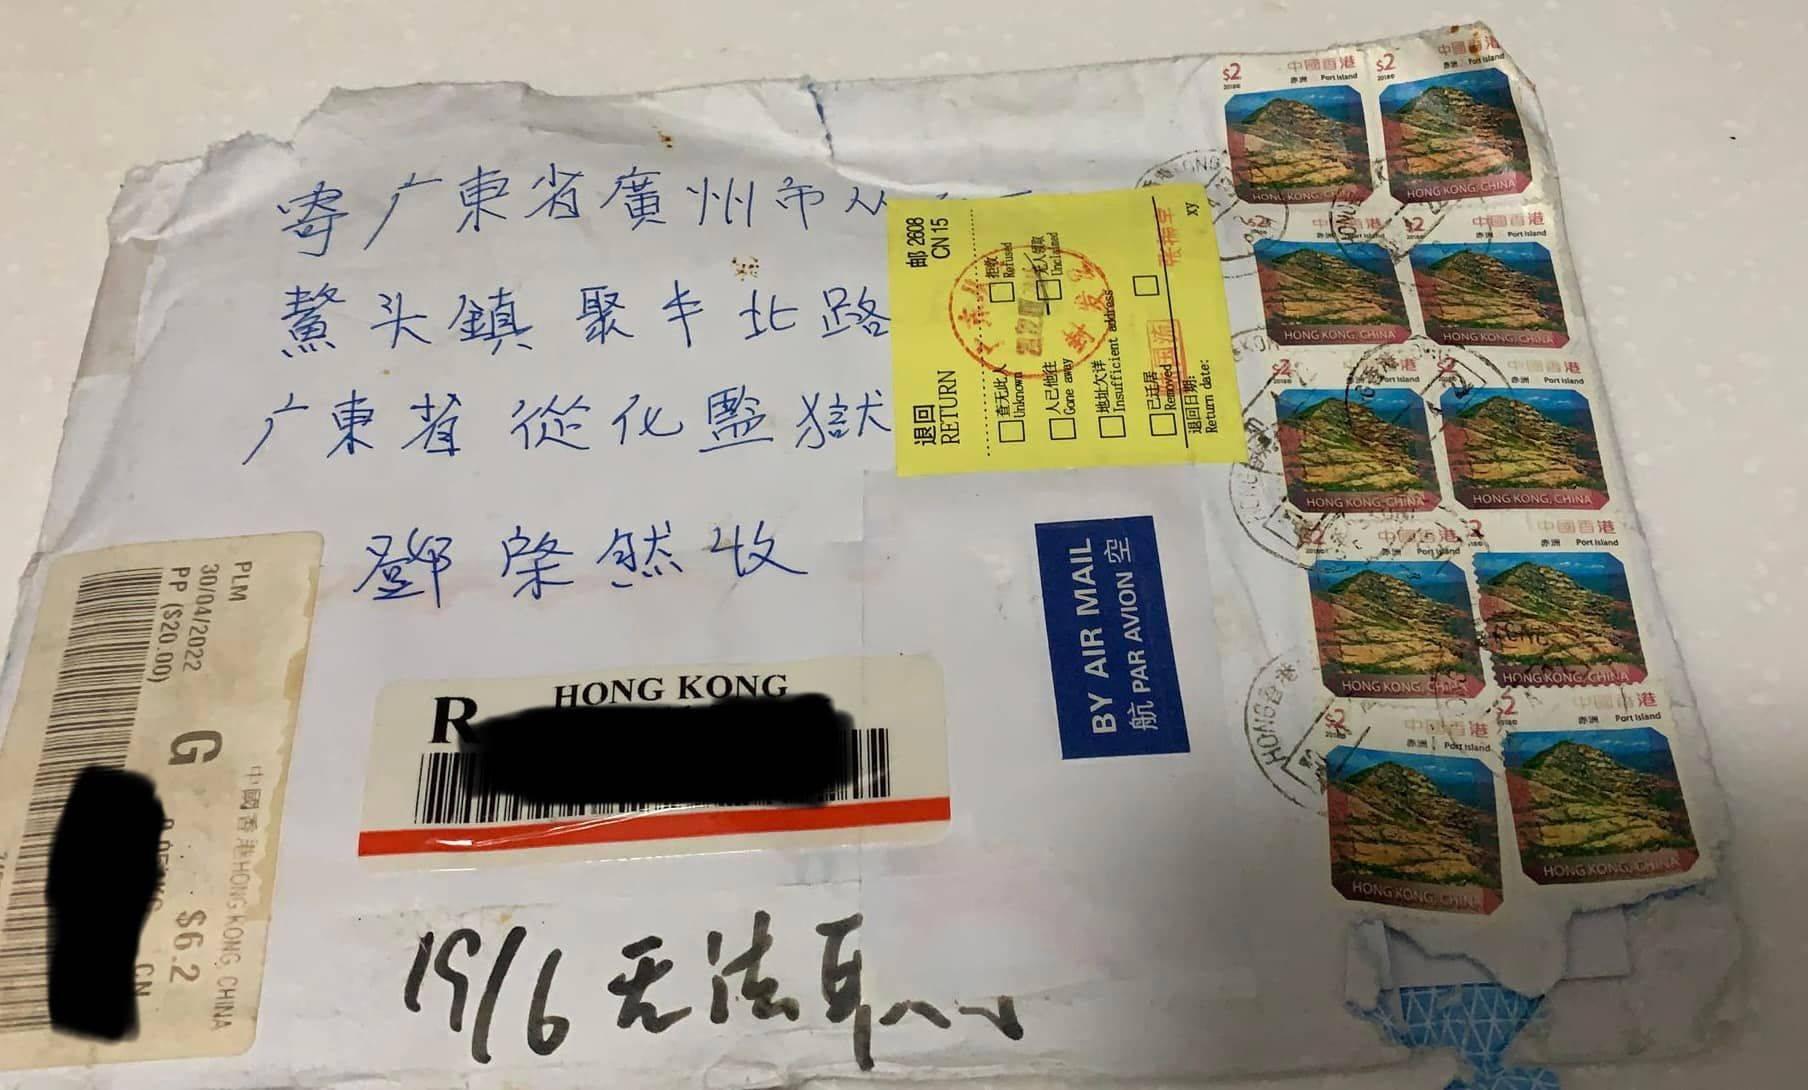 寄广東省廣州市从
鰲头鎮聚丰北路
广東省從化監獄
鄧棨然收
邮 2608
CN 15
退回
RETURN
查无此人
Unknown
拒收
Refused
人已他往
Gone away
无人领取
Unclaimed
地址欠详
Insufficient address
已迁居
Removed
退回日期:
Return date:
xy
BY AIR MAIL
航 PAR AVION 空
R
HONG KONG
PLM
30/04/2022
PP ($20.00)
G
$6.2
CN
中國香港 HONG KONG, CHINA
19/6 无法
$2 中國香港
2018© 赤洲 Port Island
HONG KONG, CHINA
$2 中國香港
2018© 赤洲 Port Island
HONG KONG, CHINA
$2 中國香港
2018© 赤洲 Port Island
HONG KONG, CHINA
$2 中國香港
赤洲 Port Island
HONG KONG, CHINA
$2 中國香港
2018© 赤洲 Port Island
HONG KONG, CHINA
$2 中國香港
2018© 赤洲 Port Island
HONG KONG, CHINA
$2 中國香港
2018© 赤洲 Port Island
HONG KONG, CHINA
$2 中國香港
2018© 赤洲 Port Island
HONG KONG, CHINA
$2 中國香港
2018© 赤洲 Port Island
HONG KONG, CHINA
$2 中國香港
2018© 赤洲 Port Island
HONG KONG, CHINA